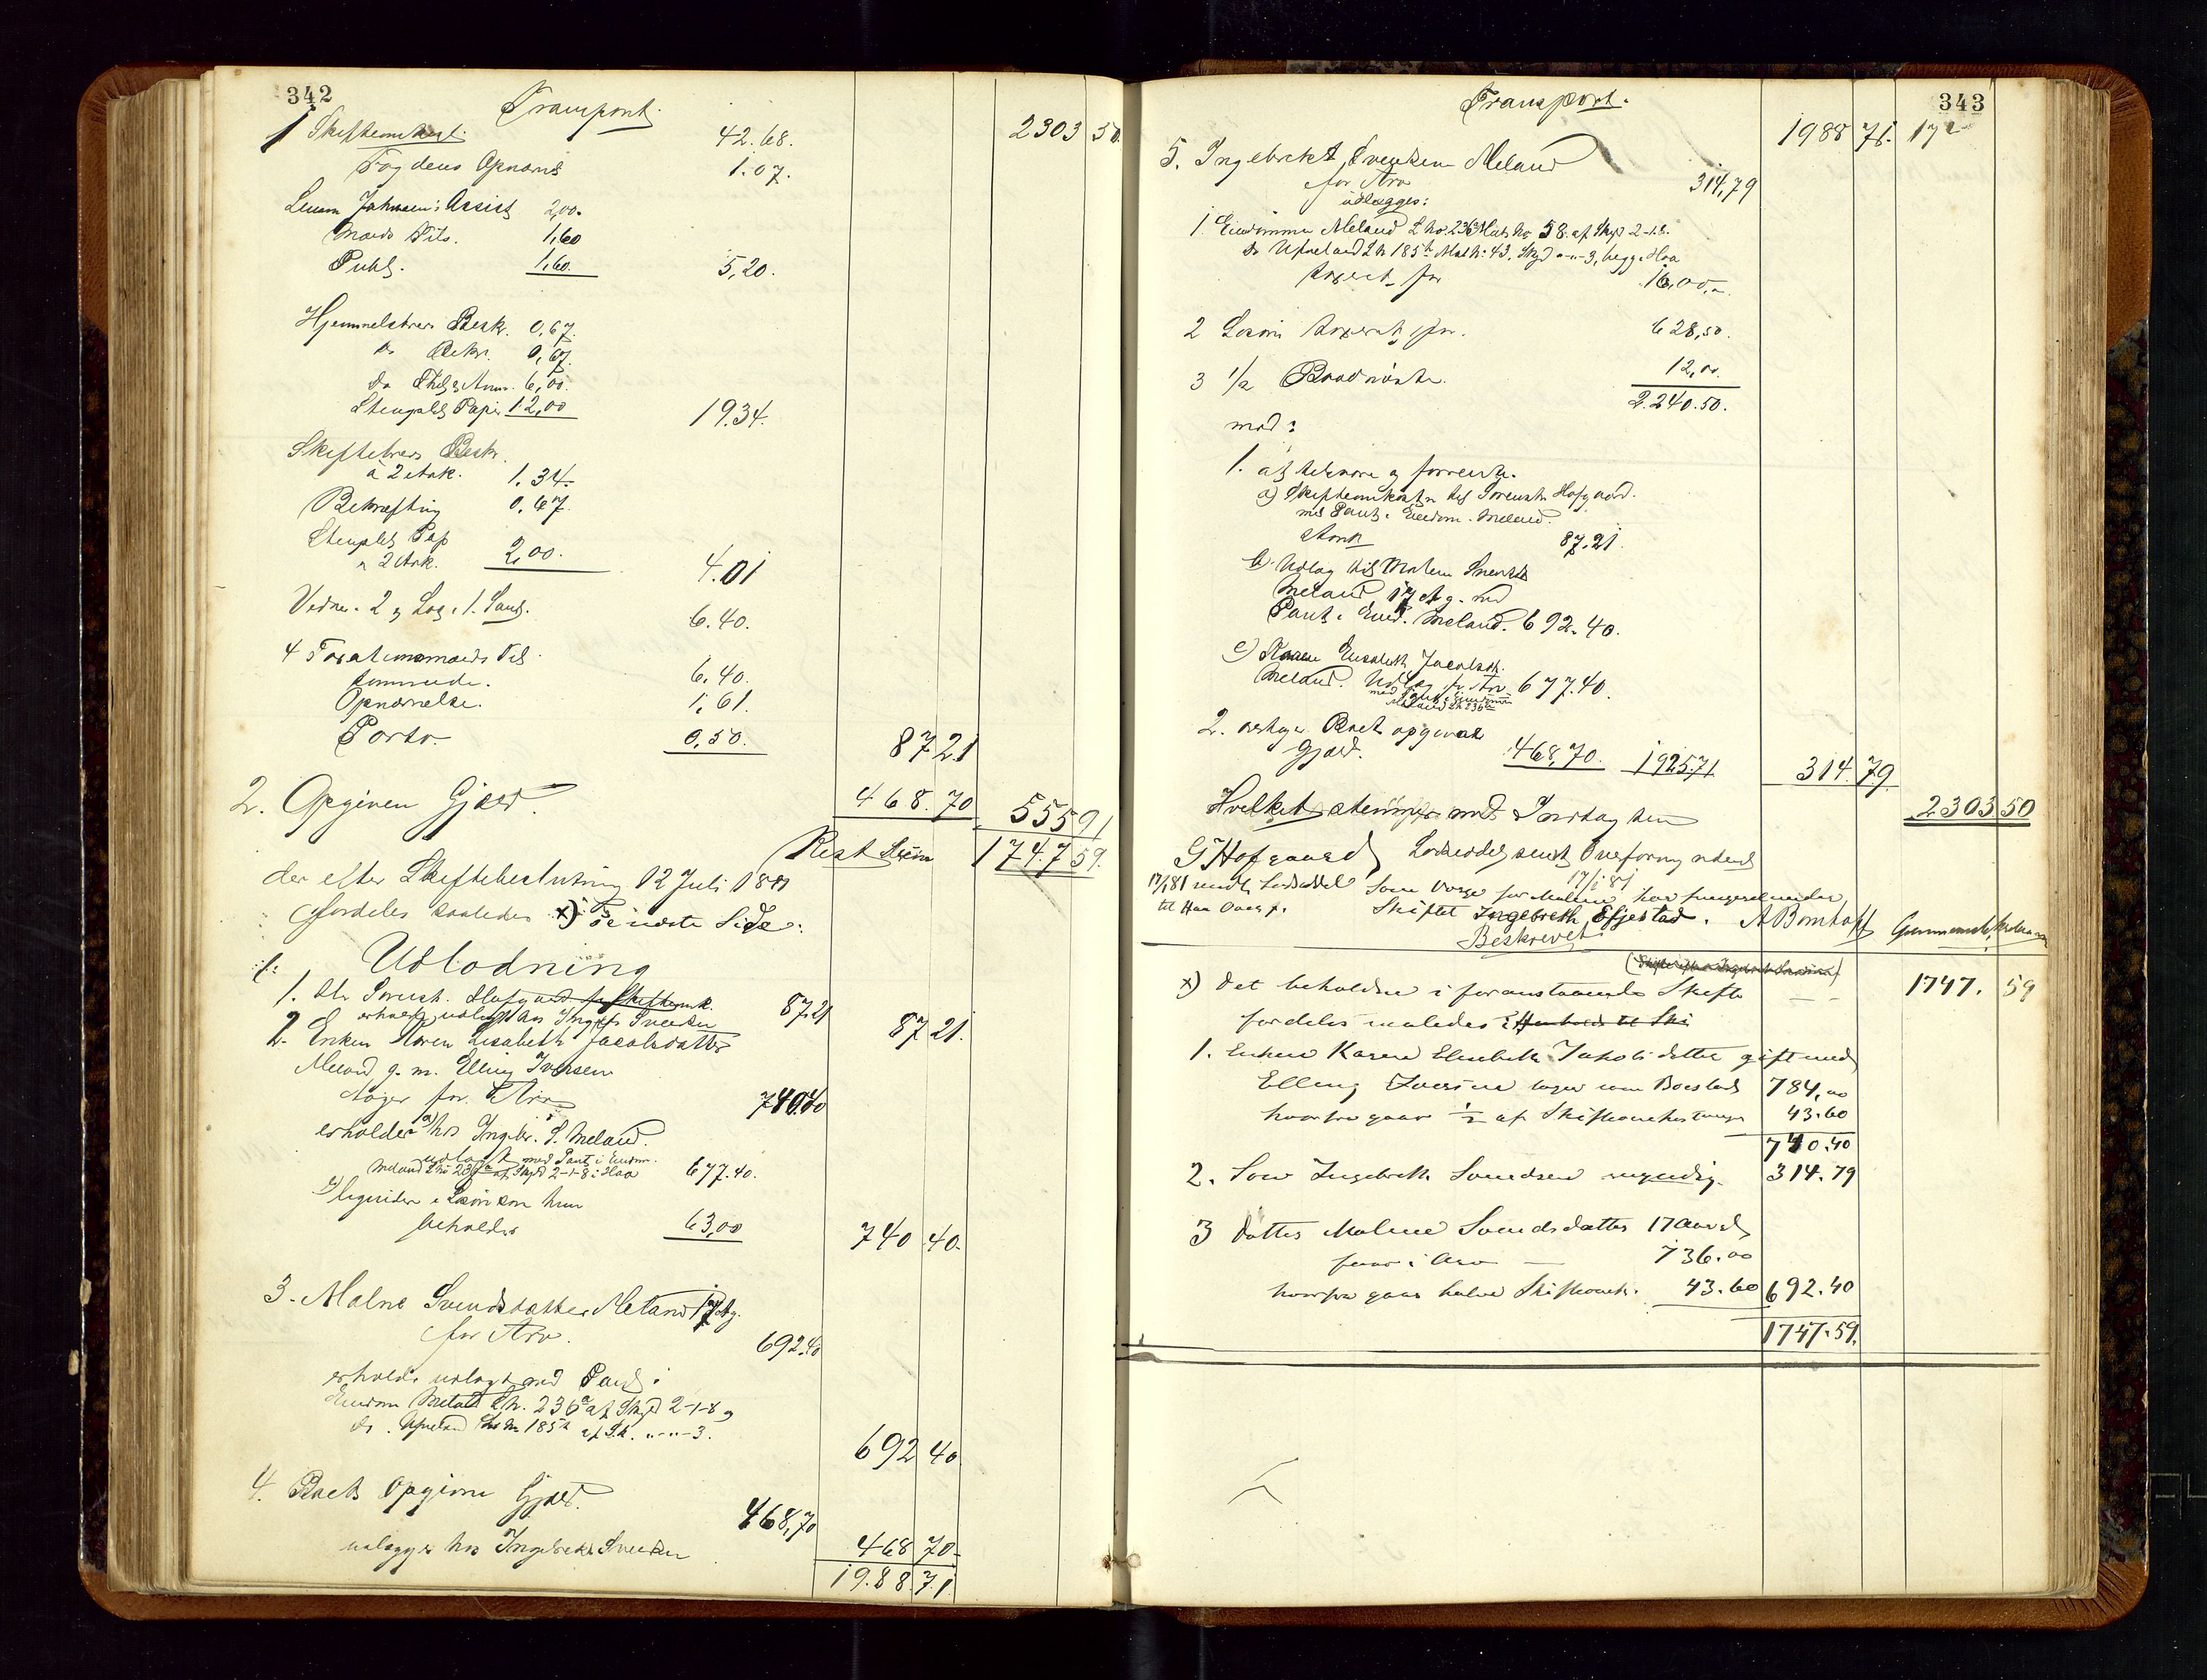 342
Transport.
1 Skifteomkost. 42.68. 2303 50
Fogdens Opnævnt 1.07.
Lensm Jahnsens Assist 2,00.
Mænds Tils. 1,60
Publ. 1,60. 5,20.
Hjemmelsbrevs Besk. 0,67.
do Bekr. 0,67.
do Thgl & Anm. 6,00.
Stempelt Papir 12,00 19.34.
Skiftebrevs Besk.
à 2 Ark. 1.34.
Bekræftning 0.67.
Stemplet Pap
2 Ark. 2,00. 4.01
Vidne. 2 g Log. 1. Saml. 6.40.
4 Taxationsmænds Tils 6,40.
kommende.
Opnævnelse. 1,61.
Porto. 0,50. 87 21
2. Opgiven Gjæld. 468.70 555 91
Rest Løsøre 1747 59.
der efter Skiftebeslutning 12 Juli 1881
fordeles saaledes x) Se næste Side:
Udlodning
1. Hr Sorensk. Hofgaard for Skifteomk. 87.21
erholder udlagt hos Ingebr Svendsen 87 21.
2. Enken Karen Lisabeth Jacobsdatter
Meland g. m. Elling Iversen
tager for Arv 740.40
erholder a) hos Ingebr. S. Meland.
udlagt med Pant i Eiend.
Meland Lno 236a af Skyld 2-1-8 i Haa 677.40.
b) ligeciden i Løsøre som hun
beholder 63,00 740 40.
3. Malne Svendsdatter Meland 17 Ag.
for Arv. 692.40
erholde udlagt med Pant i
Eiendom Meland Ln. 236a af Skyld 2-1-8 g
do. Upneland Lno 185a af Sk. "-"-3.
692 40
4. Boets Opgivne Gjæld. 468,70
udlægges hos Ingebrekt Svendsen 468 70
1988 71.
343
Transport.
1988 71.
5. Ingebrekt Svendsen Meland
for Arv 314,79
udlægges:
1. Eiendommen Meland Lno 236a Matr No 58. af Skyld 2-1-8.
do Upneland Ln 185a Matr: 43. Skyld "-"-3, begge i Haa
taxeret for 1600,-.
2 Løsøre taxeret for. 628,50.
3 1/2 Baadnøste. 12,00.
2.240.50.
mod:
1. at tilsvare og forrente.
a) Skifteomkostn til Sorenskr Hofgaard.
med Pant i Eiendom. Meland.
87.21
b. Udlæg til Malene Svendsd
Meland 17 A g. med
Pant i Eiend. Meland. 692.40.
c) Karen Elisabeth Jacobsd.
Meland. Udlæg for Arv 677.40.
med Pant i Eiendommen
Meland Ln 236a
2. overtager Boets opgivne
Gjæld. 468,70. 1925.71 314.79
Hvilket stemmer med Indtægten 2303 50
G Hofgaard
Lodseddel sendt Overformynderiet
17/1 81
17/1 81 sendt Lodseddel Som Værge for Malene har fungeret under
til Haa Overf. Skiftet Ingebreth Efjestad. A Bomhoff
Beskrevet
x) Det beholdne i foranstaaende Skifte 1747. 59
fordeles saaledes:
1. Enken Karen Elisabeth Jakobsdatter gift med
Elling Iversen tager som Boeslod 784,00
hvorfra gaar 1/2 af Skifteomkostninger 43.60
740.40
2. Søn Ingebreth Svendsen myndig 314.79
3 Datter Malene Svendsdatter 17 Aar
faar i Arv — 736.00
hvorfra gaar halve Skifteomk. 43.60 692.40
1747.59.